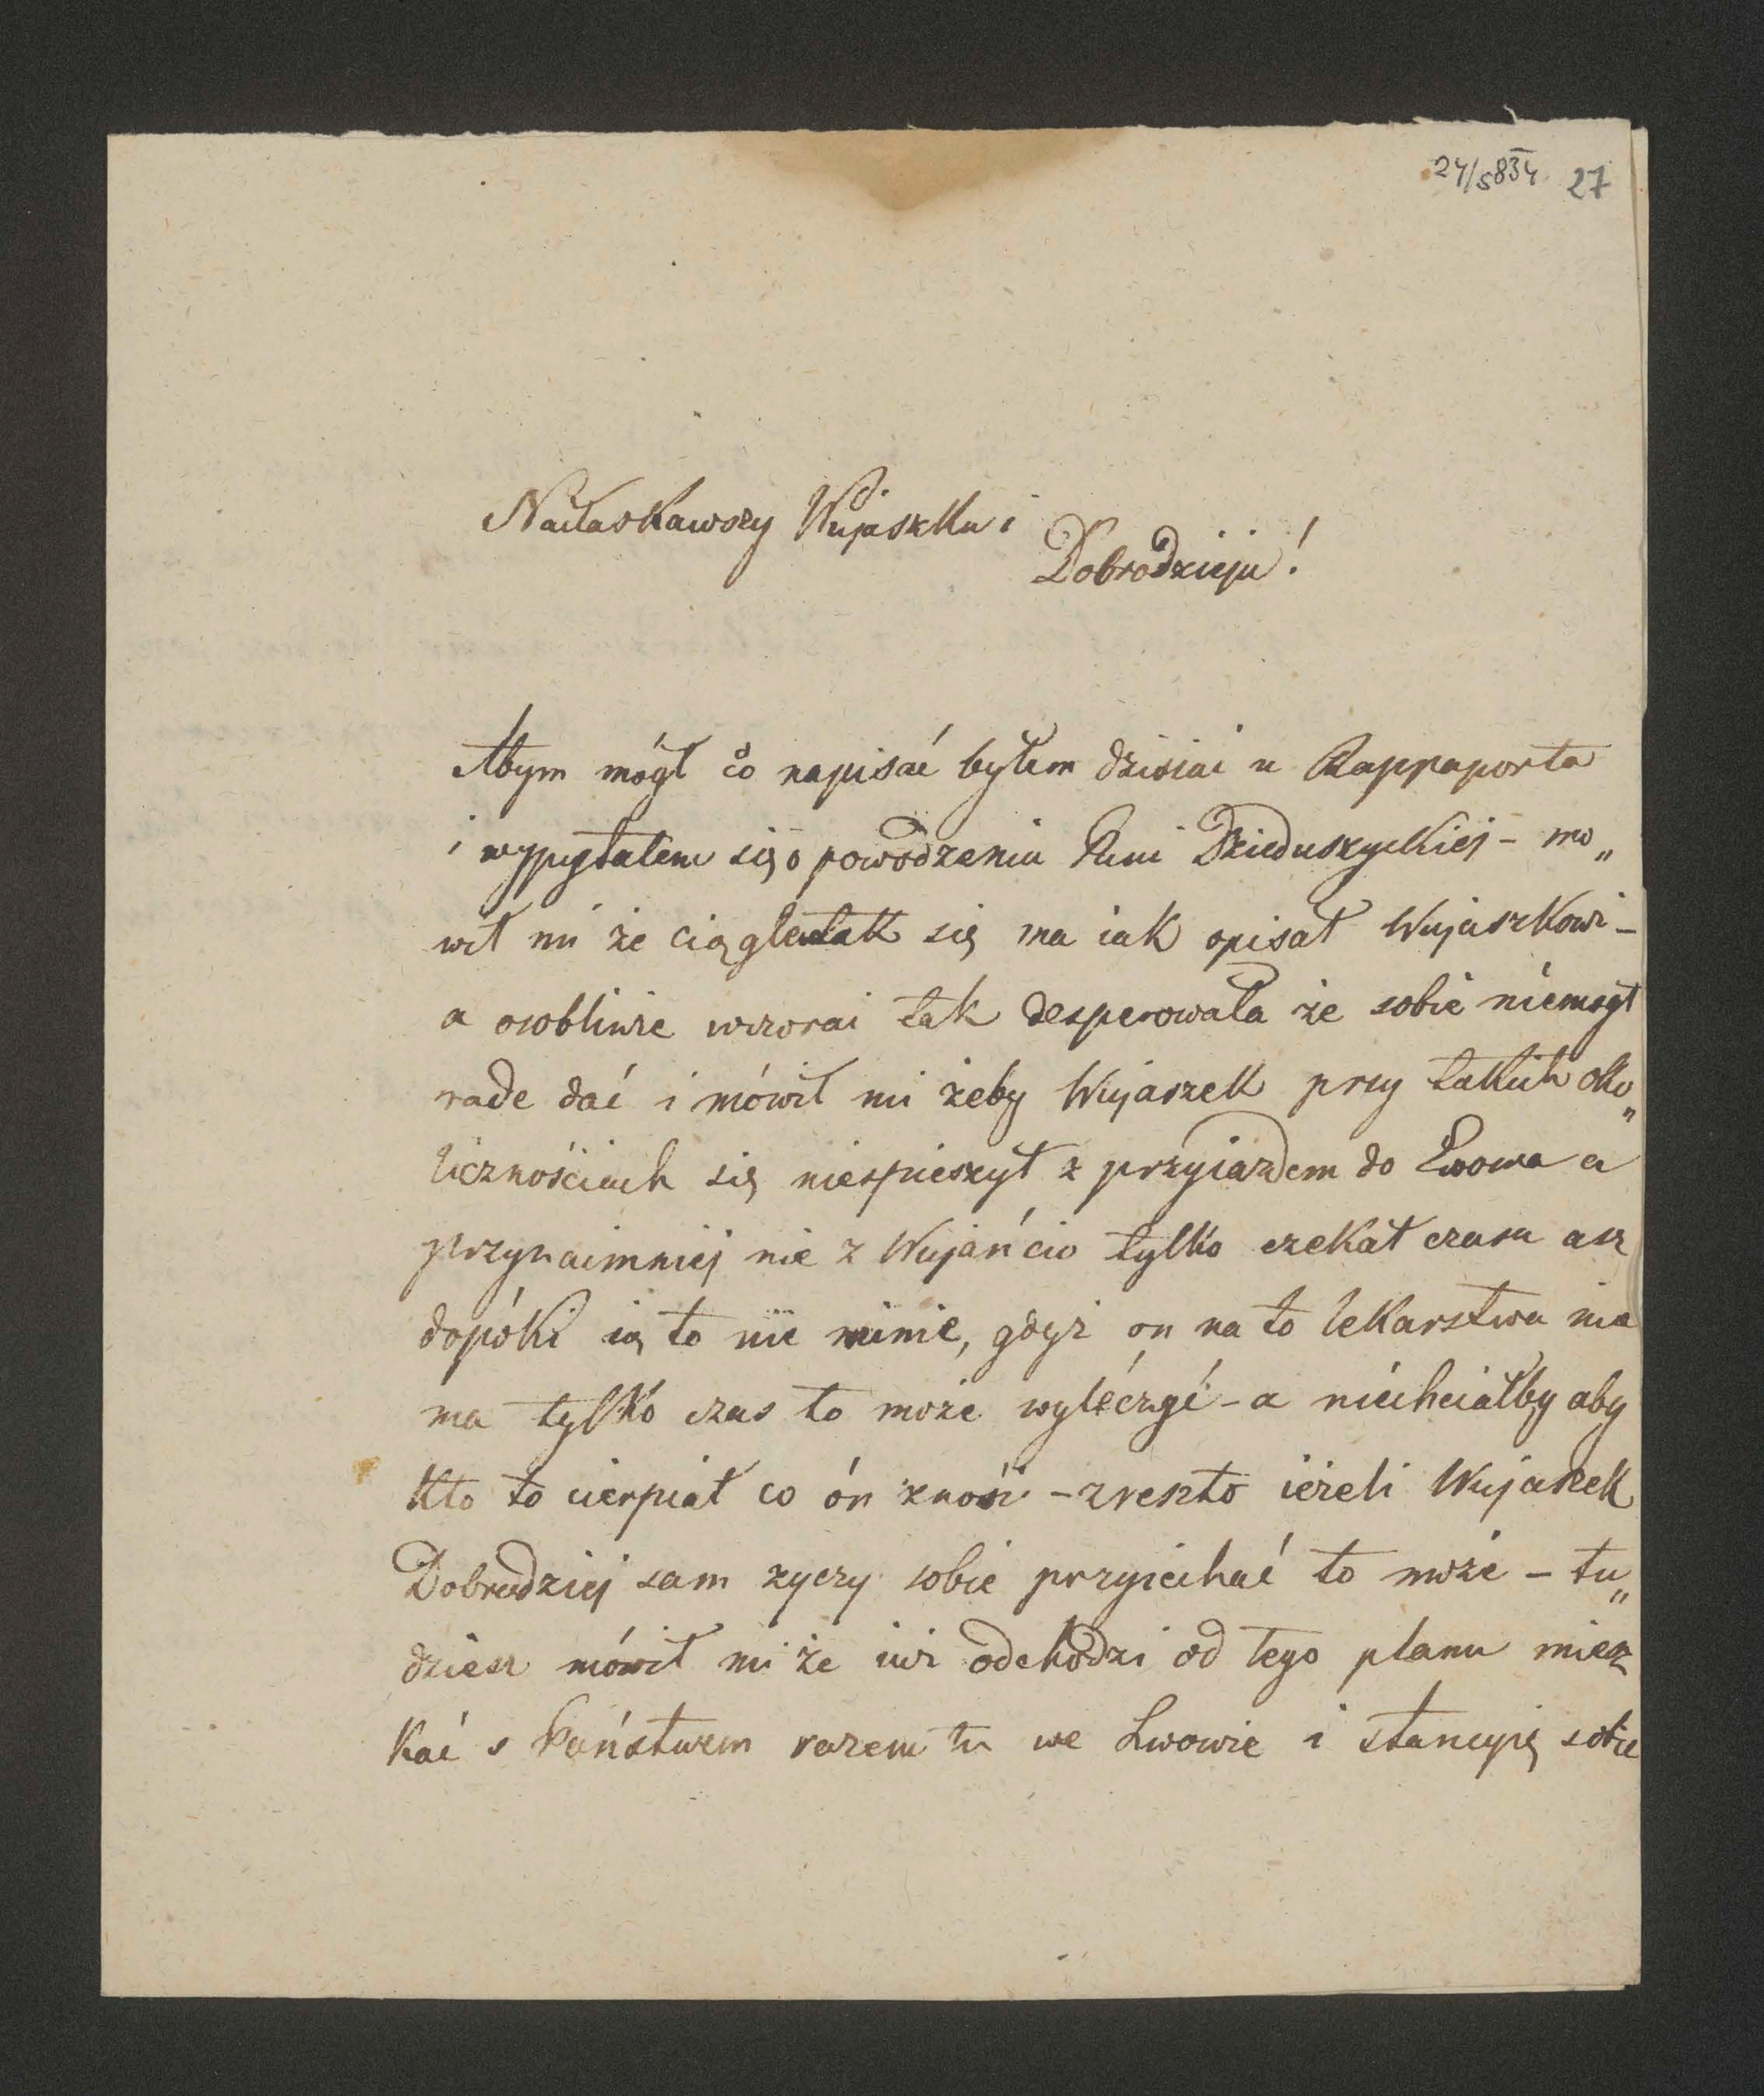 24/5834 27
Nałaskawszy Wujaszku i
Dobrodzieju!
Abym mógł co napisać byłem dzisiai u Rappaporta
i wypytałem się o powodzeniu Pani Dzieduszyckiej - mo„
wił mi że ciągle tak się ma iak opisał Wujaszkowi -
a osobliwie wczorai tak desperowała że sobie niemógł
rade dać i mówił mi żeby Wujaszek przy takich oko„
licznościach się niespieszył z przyiazdem do Lwowa a
przynaimniej nie z Wujańcio tylko czekał czasu asz
dopóki ią to nie minie, gdyż on na to lekarstwa nie
ma tylko czas to może wyléczyć - a niéchciałby aby
kto to cierpiał co ón znosi - zreszto ieżeli Wujaszek
Dobrodziej sam zyczy sobie przyiechać to może - tu„
dziesz mówił mi że iuż odchodzi od tego planu miesz
kać s Państwem razem tu we Lwowie i stancyię sobie